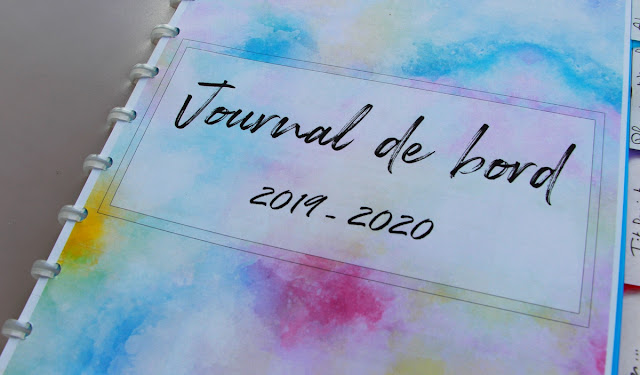 Journal de bord
2019-2020